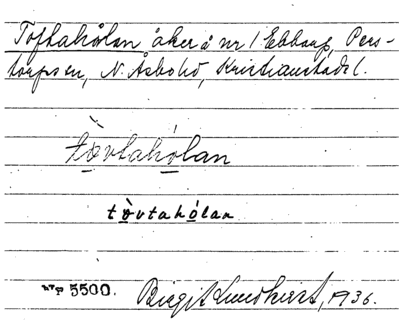 Toftahålan åker å nr 1 Ebbarp, Pers-
torps sn, N. Åsbo hd, Kristianstads l.
tòvtahólan
tòvtahólan
N:o 5500. Birgit Lundkvist, 1936.